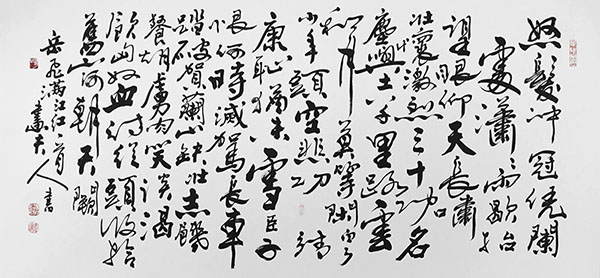 怒髮冲冠凭闌
處瀟瀟雨歇抬
望眼仰天長嘯
壯懷激烈三十功名
塵與土八千里路雲
和月莫等閑白了
少年頭空悲切靖
康恥猶未雪臣子
恨何時滅駕長車
踏破賀蘭山缺壯志飢
餐胡虜肉笑談渴
飲匈奴血待從頭收拾
舊山河朝天闕
岳飛滿江紅一首